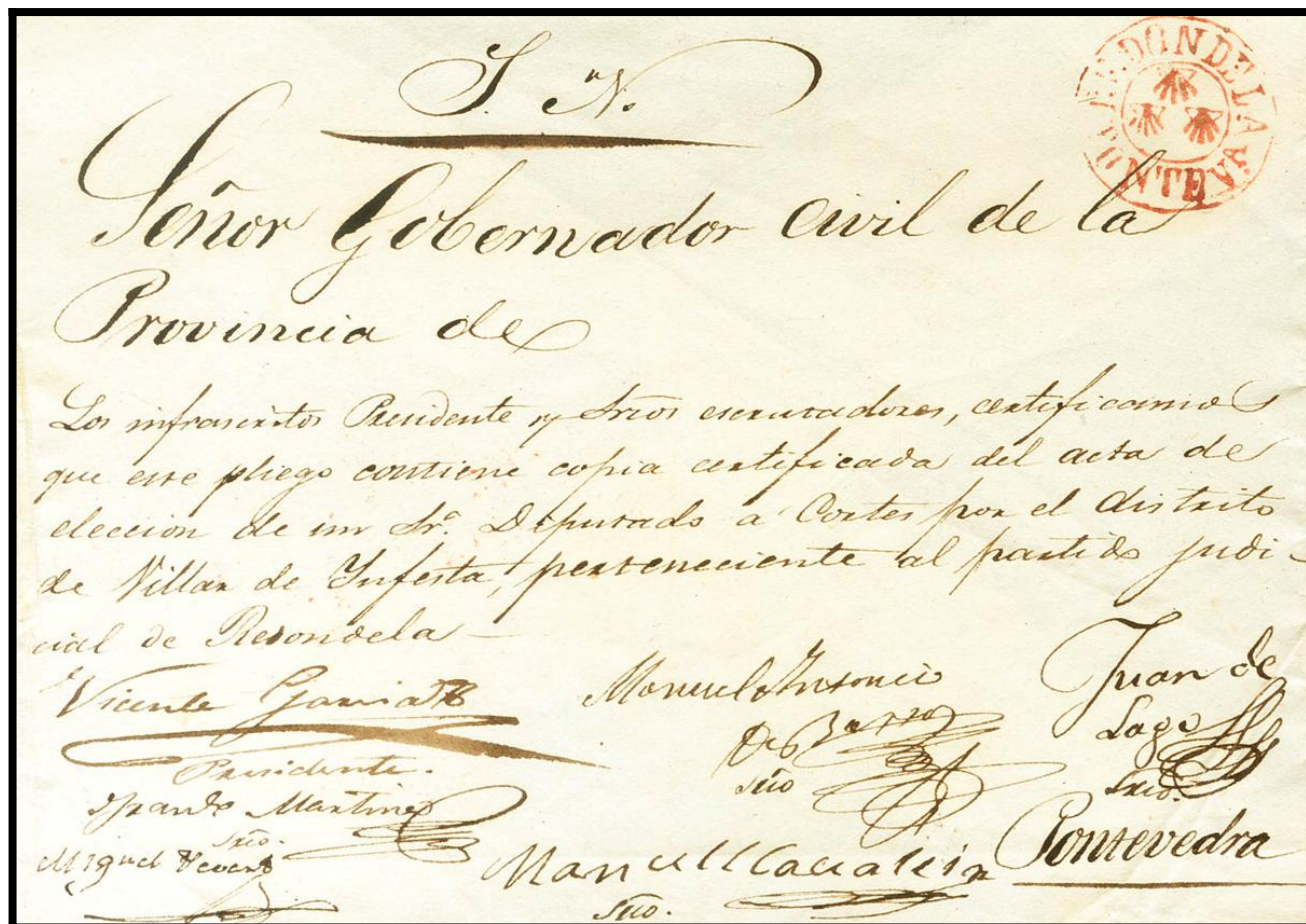 S. N.
REDONDELA
PONTEVA
Señor Gobernador civil de la
Provincia de
Los infrascritos Presidente y Srios escrutadores, certificamos
que este pliego contiene copia certificada del acta de
eleccion de un Sr. Diputado a Cortes por el distrito
de Villar de Infesta, perteneciente al partido judi-
cial de Redondela
Vicente Garcia
Presidente.
Manuel Antonio
De
Srio
Juan de
Lago
Srio.
Martinez
Srio.
Miguel
Manuel
Srio.
Pontevedra